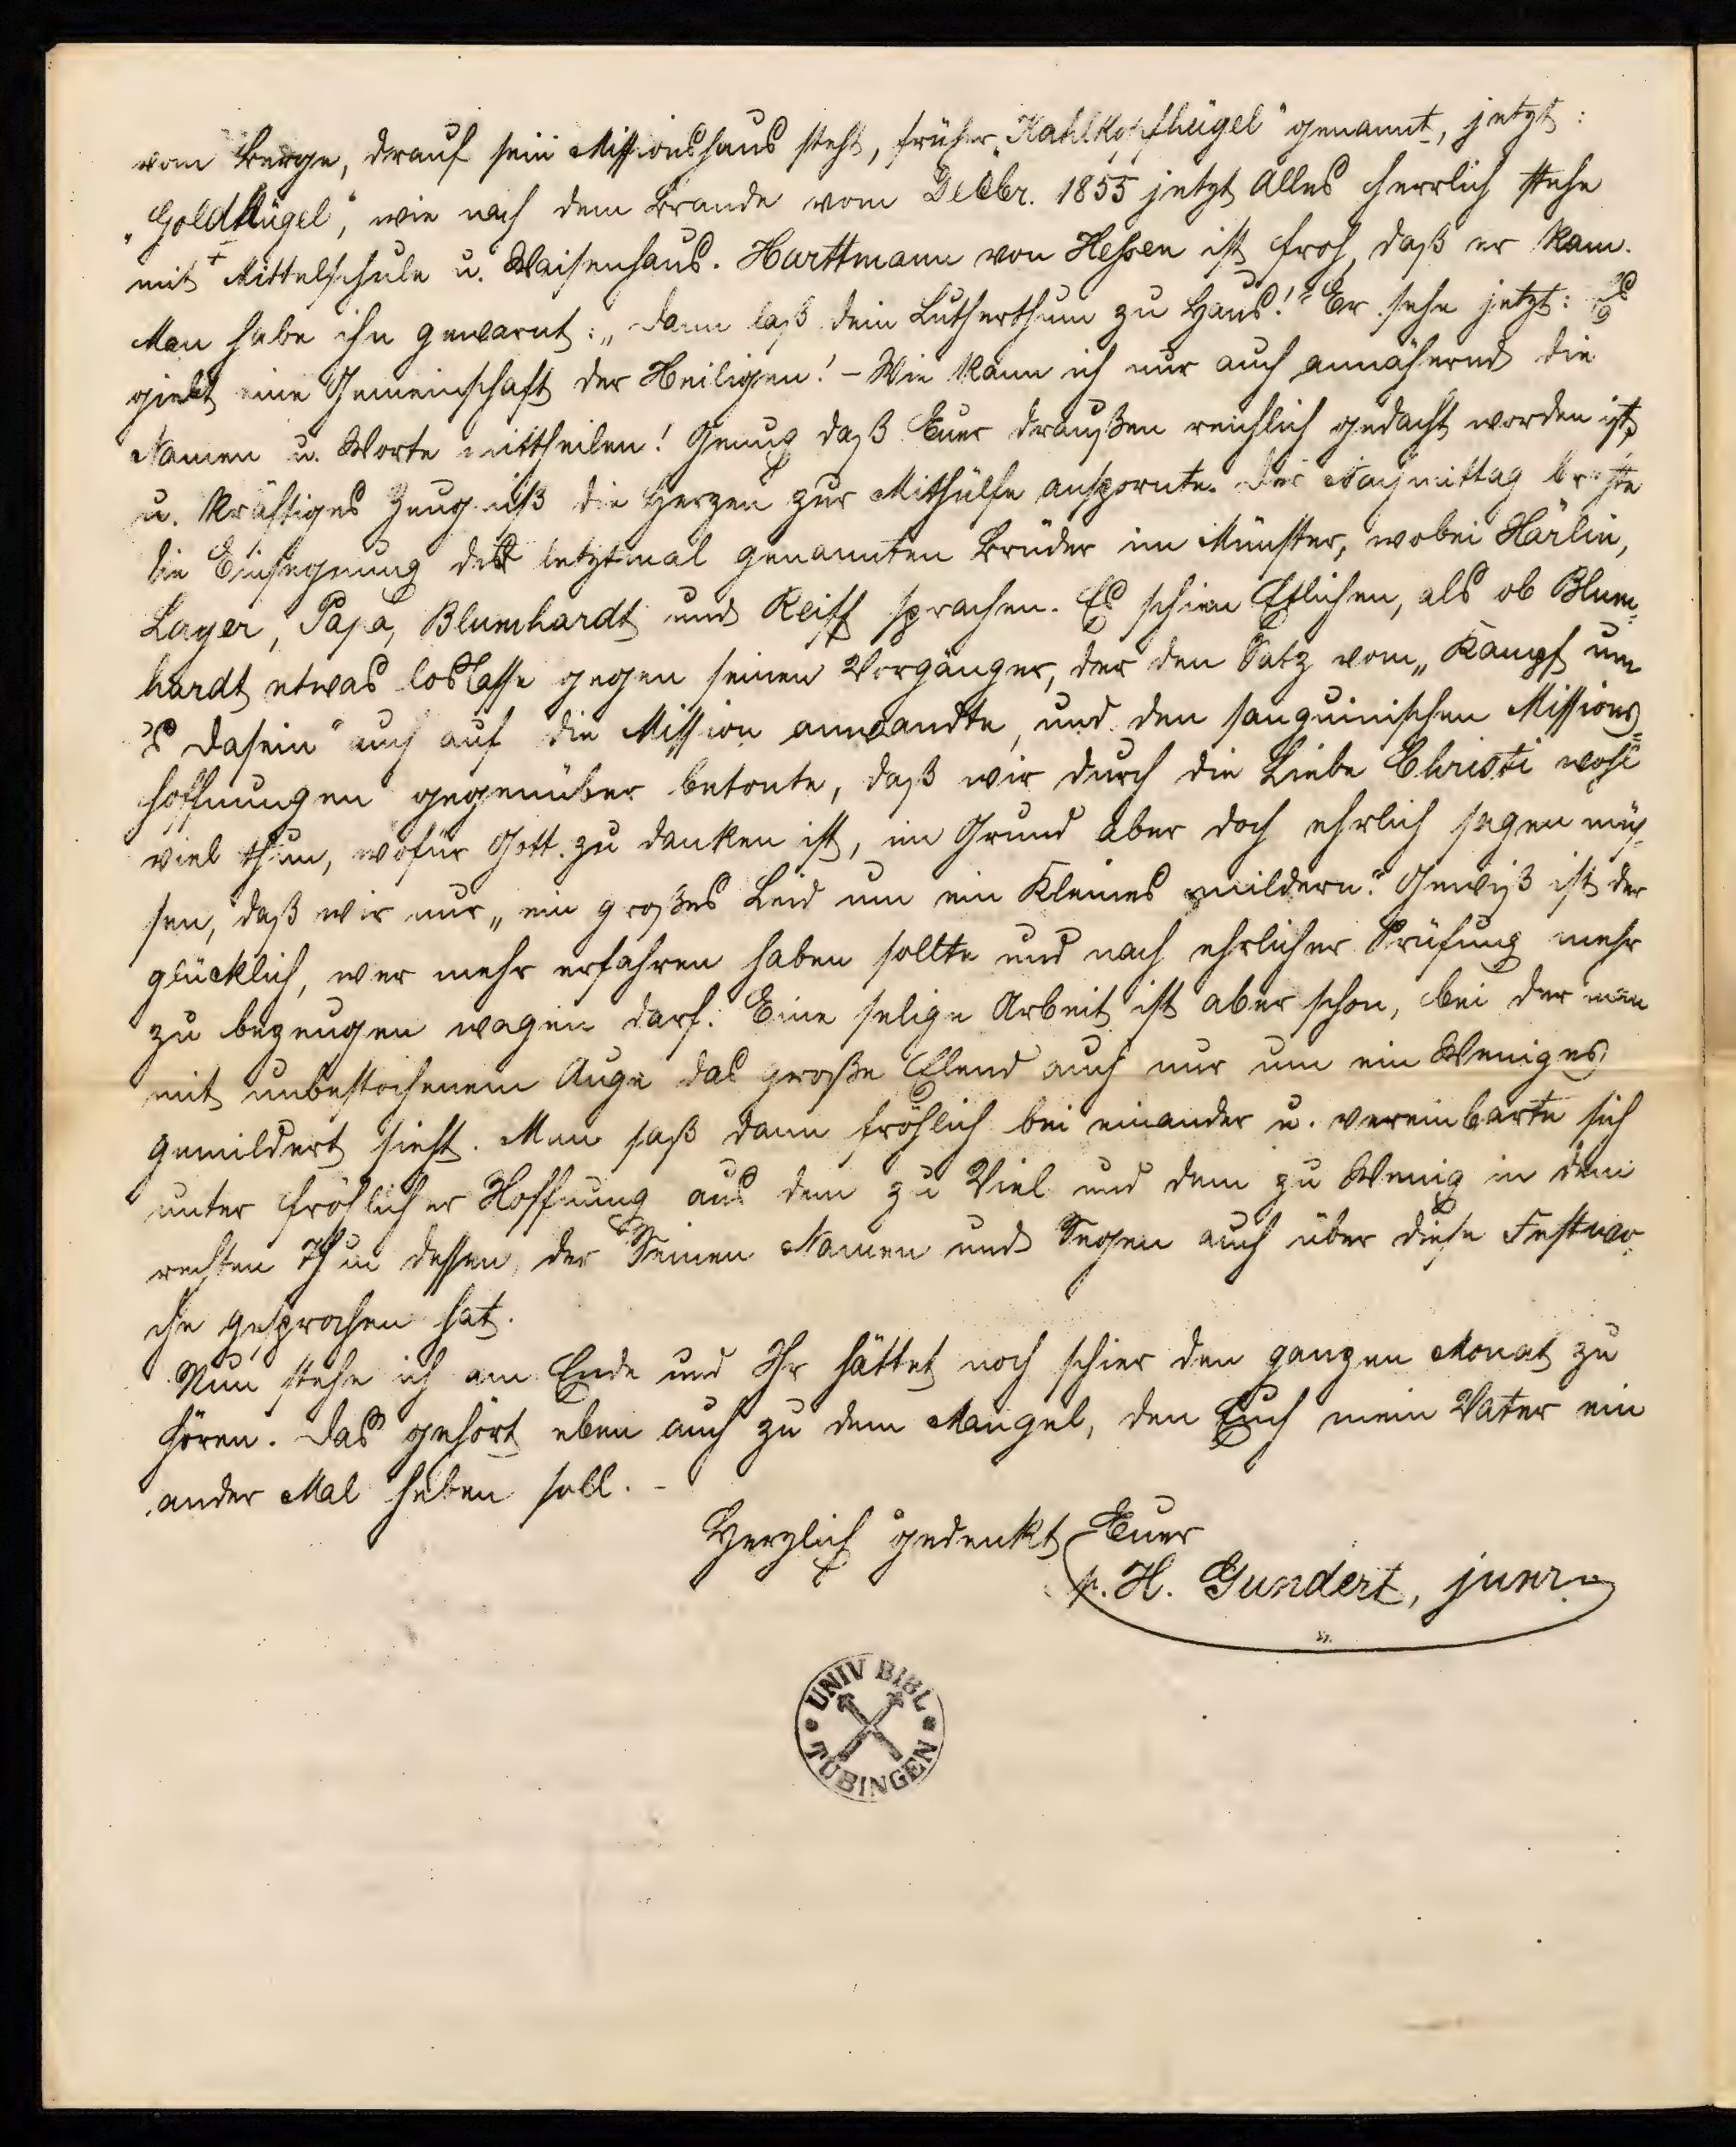 vom Berge, drauf sein Missionshaus steht, früher „Kahlkopfhügel" genannt, jetzt:
„Goldhügel", wie nach dem Brande vom Decbr. 1855 jetzt Alles herrlich stehe
mit Mittelschule u. Waisenhaus. Harttmann von Hessen ist froh, daß er kam.
Man habe ihn gewarnt: „dann laß dein Lutherthum zu Haus!" Er sehe jetzt: Es
giebt eine Gemeinschaft der Heiligen! – Wie kann ich nur auch annähernd die
Namen u. Worte mittheilen! Genug daß Euer draußen reichlich gedacht worden ist,
u. kräftiges Zeugniß die Herzen zur Mithülfe anspornte. Der Nachmittag brachte
die Einsegnung der letztmal genannten Brüder im Münster, wobei Härlin,
Layer, Papa, Blumhardt und Reiff sprachen. Es schien Etlichen, als ob Blum-
hardt etwas loslasse gegen seinen Vorgänger, der den Satz vom „Kampf um
's Dasein" auch auf die Mission anwandte, und den sanguinischen Missions-
hoffnungen gegenüber betonte, daß wir durch die Liebe Christi wohl
viel thun, wofür Gott zu danken ist, im Grund aber doch ehrlich sagen müs-
sen, daß wir nur „ein großes Leid um ein Kleines mildern." Gewiß ist der
glücklich, wer mehr erfahren haben sollte und nach ehrlicher Prüfung mehr
zu bezeugen wagen darf. Eine selige Arbeit ist aber schon, bei der man
mit unbestochenem Auge das große Elend auch nur um ein Weniges
gemildert sieht. Man saß dann fröhlich bei einander u. vereinbarte sich
unter fröhlicher Hoffnung aus dem zu Viel und dem zu Wenig in dem
rechten Thun dessen, der Seinen Namen und Segen auch über diese Festwo-
che gesprochen hat.
Nun stehe ich am Ende und Ihr hättet noch schier den ganzen Monat zu
hören. Das gehört eben auch zu dem Mangel, den Euch mein Vater ein
ander Mal heben soll. –
Herzlich gedenkt Euer
p. H. Gundert, junr.
UNIV BIBL
TÜBINGEN